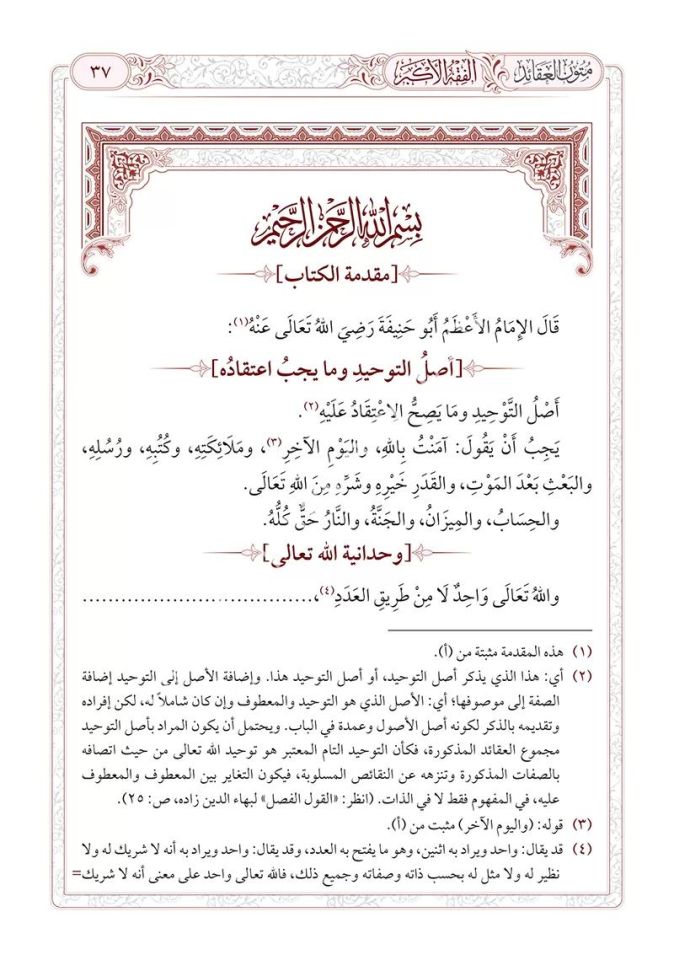 متون العقائد الفقه الأكبر ٣٧
بسم الله الرحمن الرحيم
[مقدمة الكتاب]
قَالَ الإِمَامُ الأَعْظَمُ أَبُو حَنِيفَةَ رَضِيَ اللهُ تَعَالَى عَنْهُ(١):
[أصلُ التوحيدِ وما يجبُ اعتقادُه]
أَصْلُ التَّوْحِيدِ ومَا يَصِحُّ الِاعْتِقَادُ عَلَيْهِ(٢).
يَجِبُ أَنْ يَقُولَ: آمَنْتُ بِاللهِ، واليَوْمِ الآخِرِ(٣)، ومَلَائِكَتِهِ، وكُتُبِهِ، ورُسُلِهِ،
والبَعْثِ بَعْدَ المَوْتِ، والقَدَرِ خَيْرِهِ وشَرِّهِ مِنَ اللهِ تَعَالَى.
والحِسَابُ، والمِيزَانُ، والجَنَّةُ، والنَّارُ حَقٌّ كُلُّهُ.
[وحدانية الله تعالى]
واللهُ تَعَالَى وَاحِدٌ لَا مِنْ طَرِيقِ العَدَدِ(٤)،....................................
(١) هذه المقدمة مثبتة من (أ).
(٢) أي: هذا الذي يذكر أصل التوحيد، أو أصل التوحيد هذا. وإضافة الأصل إلى التوحيد إضافة
الصفة إلى موصوفها؛ أي: الأصل الذي هو التوحيد والمعطوف وإن كان شاملاً له، لكن إفراده
وتقديمه بالذكر لكونه أصل الأصول وعمدة في الباب. ويحتمل أن يكون المراد بأصل التوحيد
مجموع العقائد المذكورة، فكأن التوحيد التام المعتبر هو توحيد الله تعالى من حيث اتصافه
بالصفات المذكورة وتنزهه عن النقائص المسلوبة، فيكون التغاير بين المعطوف والمعطوف
عليه، في المفهوم فقط لا في الذات. (انظر: «القول الفصل» لبهاء الدين زاده، ص: ٢٥).
(٣) قوله: (واليوم الآخر) مثبت من (أ).
(٤) قد يقال: واحد ويراد به اثنين، وهو ما يفتح به العدد، وقد يقال: واحد ويراد به أنه لا شريك له ولا
نظير له ولا مثل له بحسب ذاته وصفاته وجميع ذلك، فالله تعالى واحد على معنى أنه لا شريك=